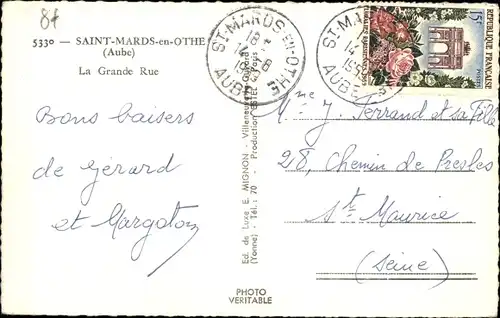 87
5330 — SAINT-MARDS-en-OTHE
(Aube)
La Grande Rue
Bons baisers
de Gérard
et Margoton
Ed. de Luxe E. MIGNON - Villeneuve
(Yonne) - Tél. : 70 - Production ESTEL
PHOTO
VERITABLE
ST-MARDS-EN-OTHE
18 H
14 - 8
AUBE
ST-MARDS
14
AUBE
15F
REPUBLIQUE FRANÇAISE
POSTES
Mme J. Ferrand et sa Fille
28, Chemin de Presles
St Maurice
(Seine)